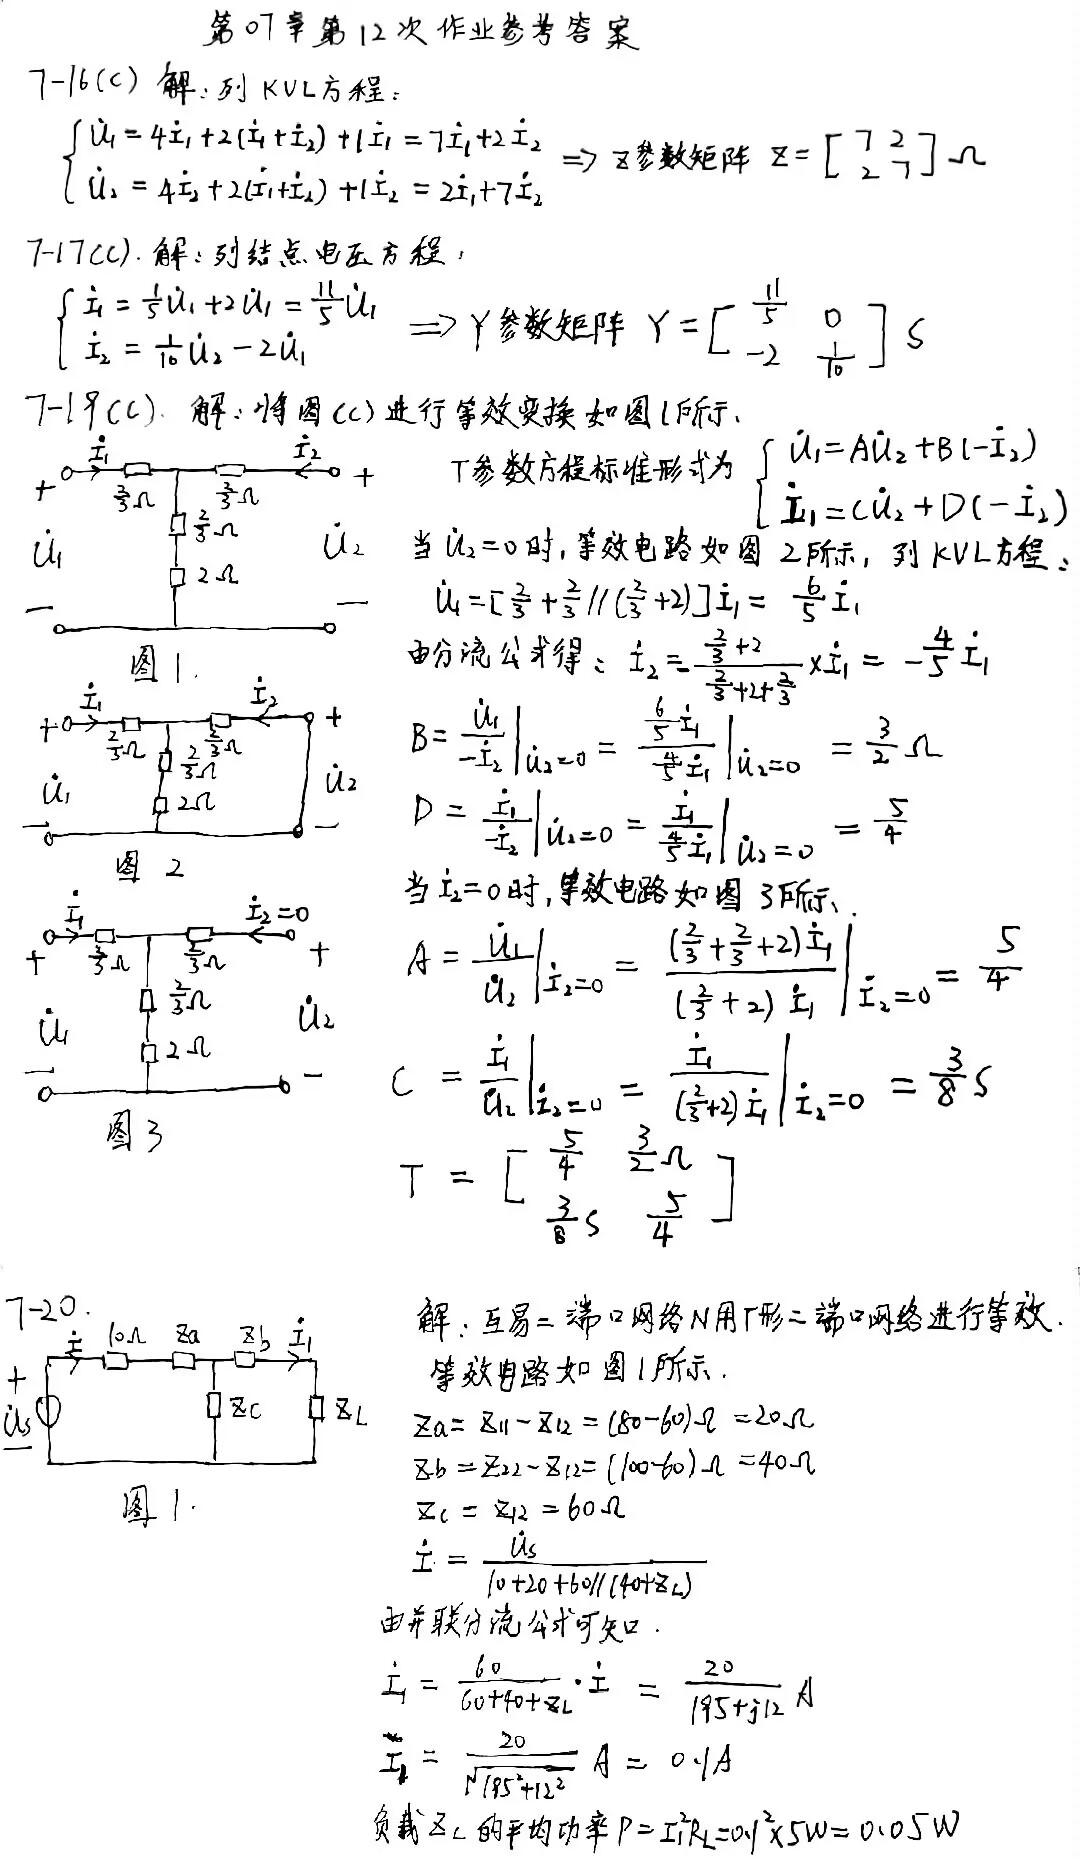 第07章第12次作业参考答案
7-16(C) 解:列KVL方程:
{ U̇₁ = 4İ₁+2(İ₁+İ₂)+1İ₁ = 7İ₁+2İ₂
U̇₂ = 4İ₂+2(İ₁+İ₂)+1İ₂ = 2İ₁+7İ₂ ⇒ Z参数矩阵 Z = [7 2; 2 7] Ω
7-17(C). 解:列结点电压方程:
{ İ₁ = 1/5 U̇₁ + 2U̇₁ = 11/5 U̇₁
İ₂ = 1/10 U̇₂ − 2U̇₁ ⇒ Y参数矩阵 Y = [11/5 0; −2 1/10] S
7-19(C). 解:将图(C)进行等效变换如图1所示.
İ₁ İ₂
+ 2/3Ω 2/3Ω +
2/3Ω
U̇₁ U̇₂
2Ω
− −
图1.
T参数方程标准形式为 { U̇₁ = AU̇₂ + B(−İ₂)
İ₁ = CU̇₂ + D(−İ₂)
当U̇₂=0时,等效电路如图2所示,列KVL方程:
U̇₁ = [2/3 + 2/3//(2/3+2)]İ₁ = 6/5 İ₁
由分流公式得: İ₂ = (2/3+2)/(2/3+2+2/3) × İ₁ = −4/5 İ₁
İ₁ İ₂
+ 2/3Ω 2/3Ω +
2/3Ω
U̇₁ U̇₂
2Ω
− −
图2
B = U̇₁/−İ₂ |U̇₂=0 = (6/5 İ₁)/(4/5 İ₁) |U̇₂=0 = 3/2 Ω
D = İ₁/−İ₂ |U̇₂=0 = İ₁/(4/5 İ₁) |U̇₂=0 = 5/4
当İ₂=0时,等效电路如图3所示.
İ₁ İ₂=0
+ 2/3Ω 2/3Ω +
2/3Ω
U̇₁ U̇₂
2Ω
− −
图3
A = U̇₁/U̇₂ |İ₂=0 = (2/3+2/3+2)İ₁/(2/3+2)İ₁ |İ₂=0 = 5/4
C = İ₁/U̇₂ |İ₂=0 = İ₁/(2/3+2)İ₁ |İ₂=0 = 3/8 S
T = [5/4 3/2Ω; 3/8S 5/4]
7-20.
İ 10Ω Za Zb İ₁
+
U̇s Zc ZL
−
图1.
解:互易二端口网络N用T形二端口网络进行等效.
等效电路如图1所示.
Za = Z11 − Z12 = (80−60)Ω = 20Ω
Zb = Z22 − Z12 = (100−60)Ω = 40Ω
Zc = Z12 = 60Ω
İ = U̇s/(10+20+60//(40+ZL))
由并联分流公式可知.
İ₁ = 60/(60+40+ZL) · İ = 20/(195+j12) A
I₁ = 20/√(195²+12²) A = 0.1A
负载ZL的平均功率P = I₁²RL = 0.1²×5W = 0.05W